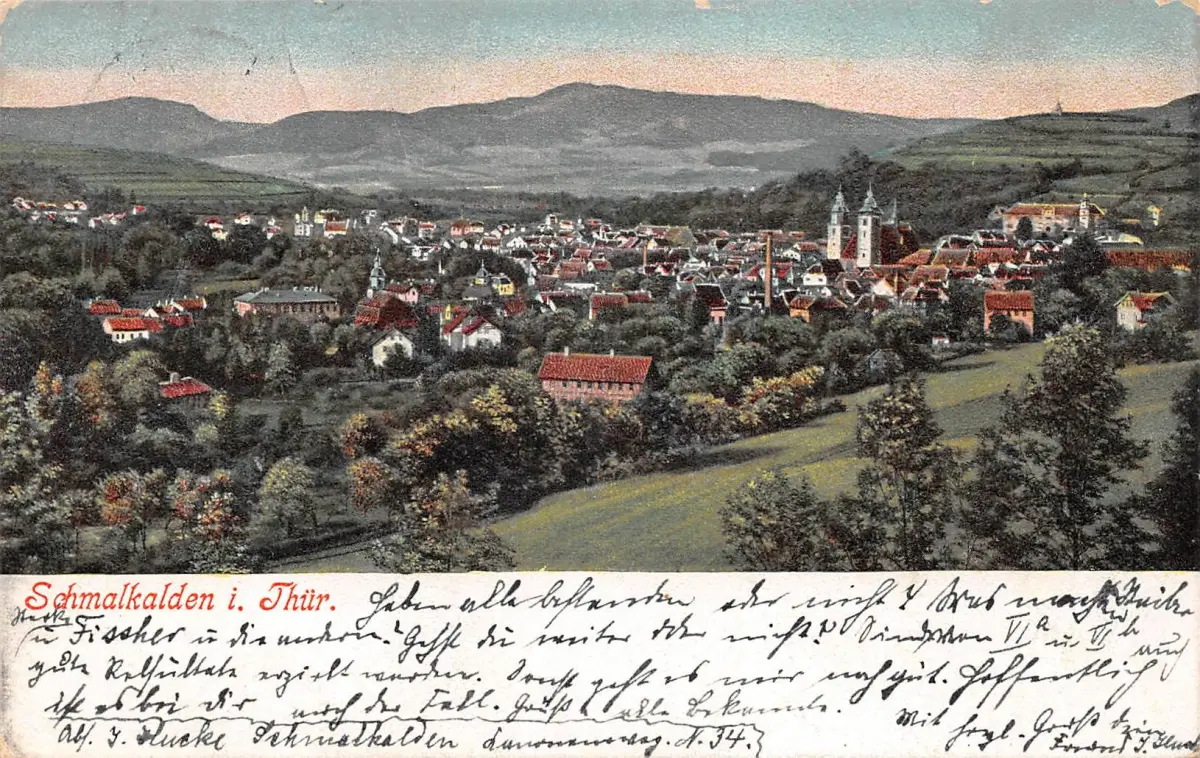 Schmalkalden i. Thür.
Haben alle bestanden oder nicht? Was macht
u Fischer u die andern? Gehst du weiter oder nicht? Sind von VIa u VIb auch
gute Resultate erzielt worden. Sonst geht es mir noch gut. Hoffentlich
ist es bei dir auch der Fall. Grüße alle Bekannte.
Mit herzl. Gruß dein
Abs. J. Hucke Schmalkalden Kanonenweg. N. 34.
Freund J. Hucke